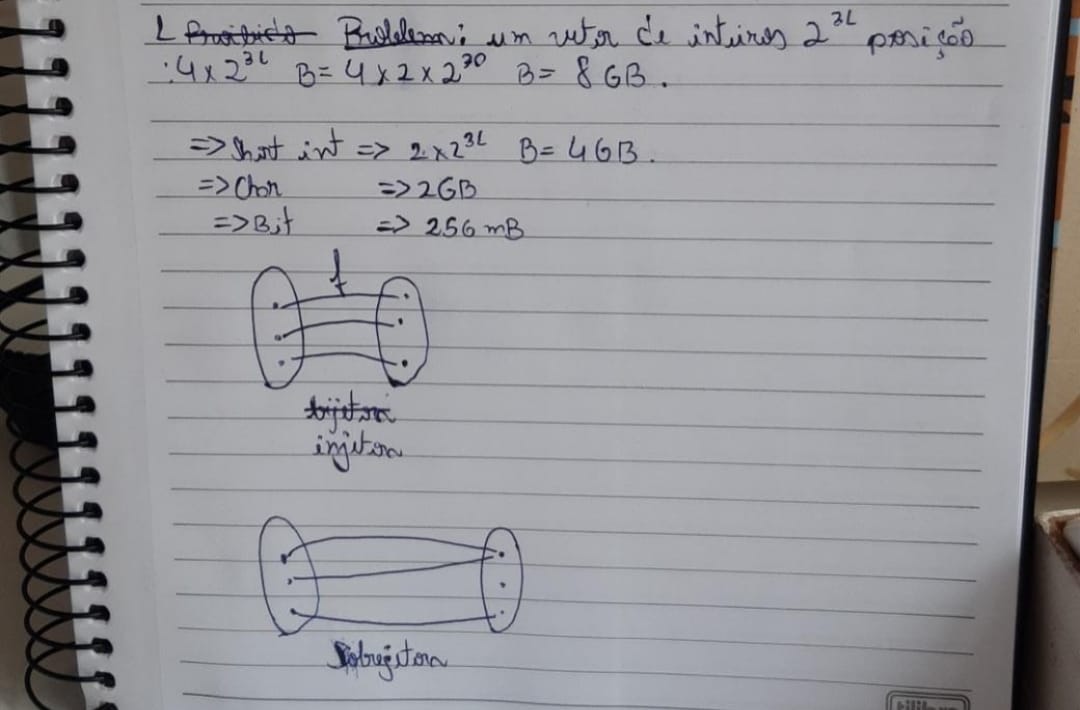 L Proibido Problema: um vetor de inteiros 2^31 posição
: 4 x 2^31 B = 4 x 2 x 2^30 B = 8 GB.
=> Short int => 2 x 2^31 B = 4 GB.
=> Char => 2GB
=> Bit => 256 mB
f
bijetora
injetora
Sobrejetora
tilibra